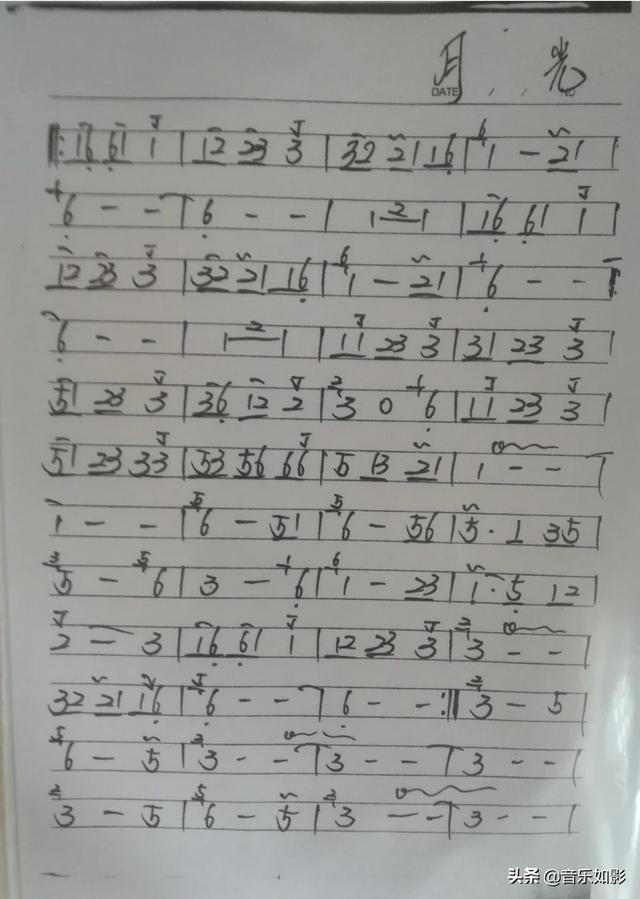 月光
DATE
‖: 16 61 1 | 12 23 3 | 32 21 16 | 1 - 21 |
6 - - | 6 - - | 2 | 16 61 1 |
12 23 3 | 32 21 16 | 1 - 21 | 6 - - |
6 - - | 2 | 11 23 3 | 31 23 3 |
51 23 3 | 36 12 2 | 3 0 6 | 11 23 3 |
51 23 33 | 53 56 66 | 5 13 21 | 1 - - |
1 - - | 6 - 51 | 6 - 56 | 5 · 1 35 |
5 - 6 | 3 - 6 | 1 - 23 | 1 · 5 12 |
2 - 3 | 16 61 1 | 12 23 3 | 3 - - |
32 21 16 | 6 - - | 6 - - :‖ 3 - 5 |
6 - 5 | 3 - - | 3 - - | 3 - - |
3 - 5 | 6 - 5 | 3 - - | 3 - - |
头条 @音乐如影